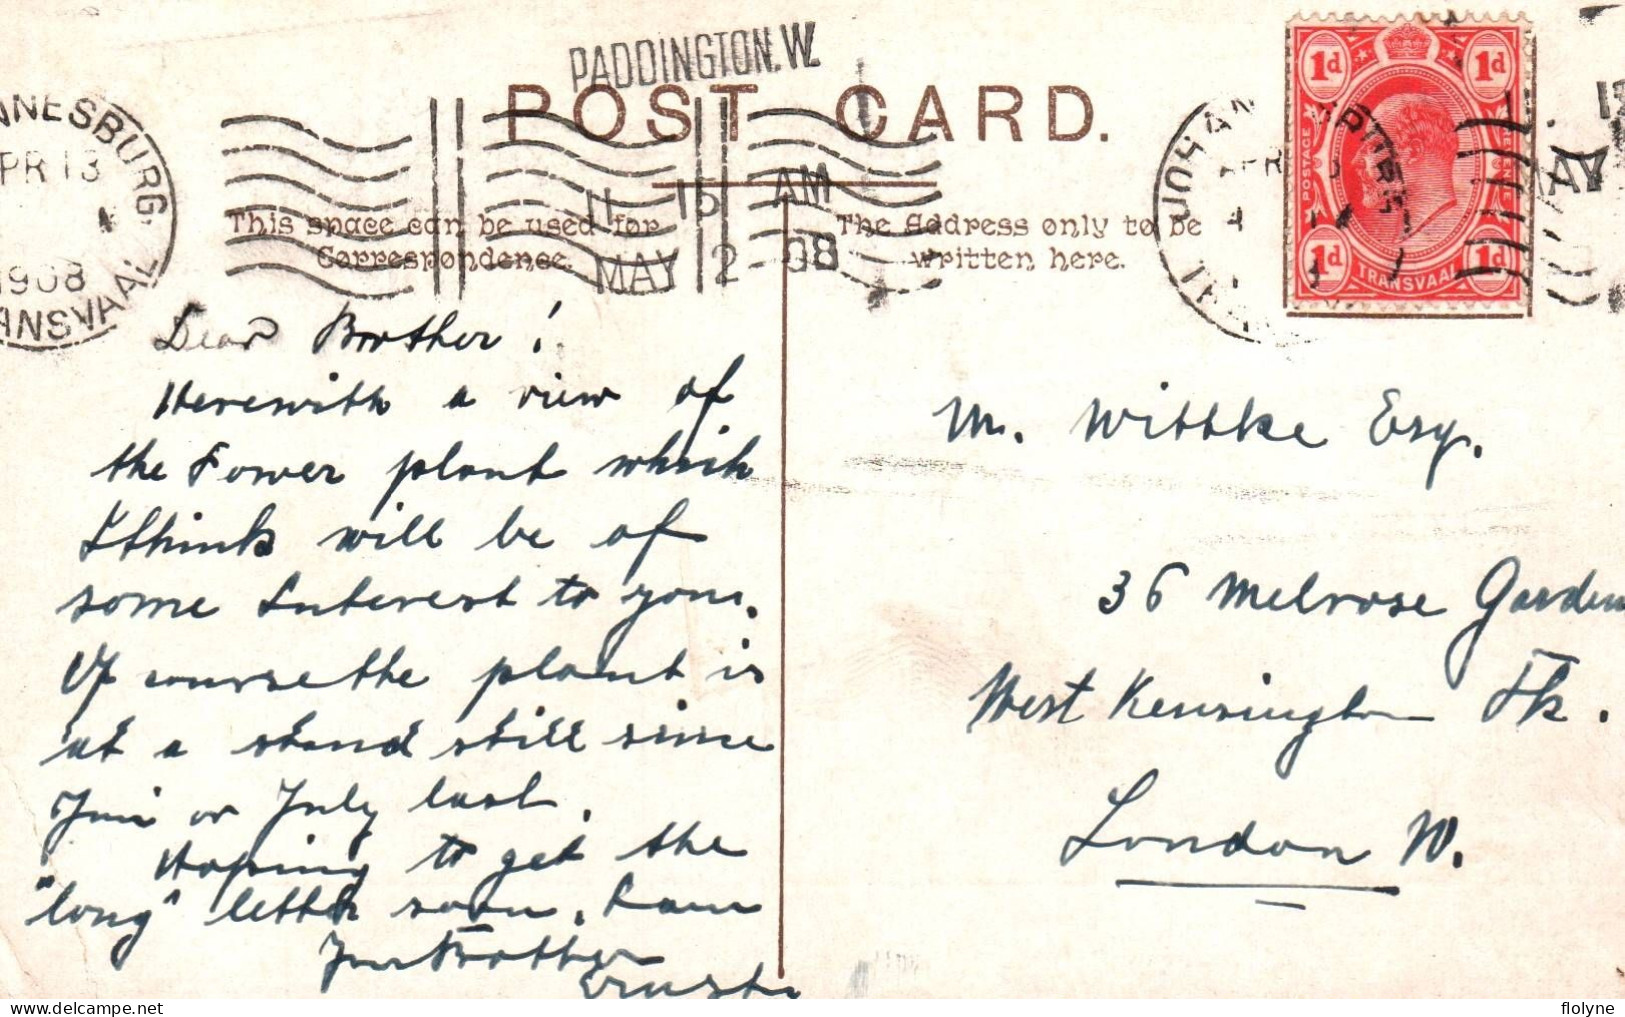 PADDINGTON.W.
POST CARD.
NNESBURG,
PR 13
1908
ANSVAAL
11 15 AM
MAY 2 - 08
This space can be used for
Correspondence.
The Address only to be
written here.
JOHAN
1d 1d
POSTAGE
1d 1d
TRANSVAAL
Dear Brother!
Herewith a view of
the Power plant which
I think will be of
some Interest to you.
Of course the plant is
at a stand still since
Juni or July last.
Hoping to get the
"long" letter soon. I am
Your Brother
Ernst
M. Wittke Esq.
36 Melrose Garden
West Kensington Pk.
London W.
flolyne